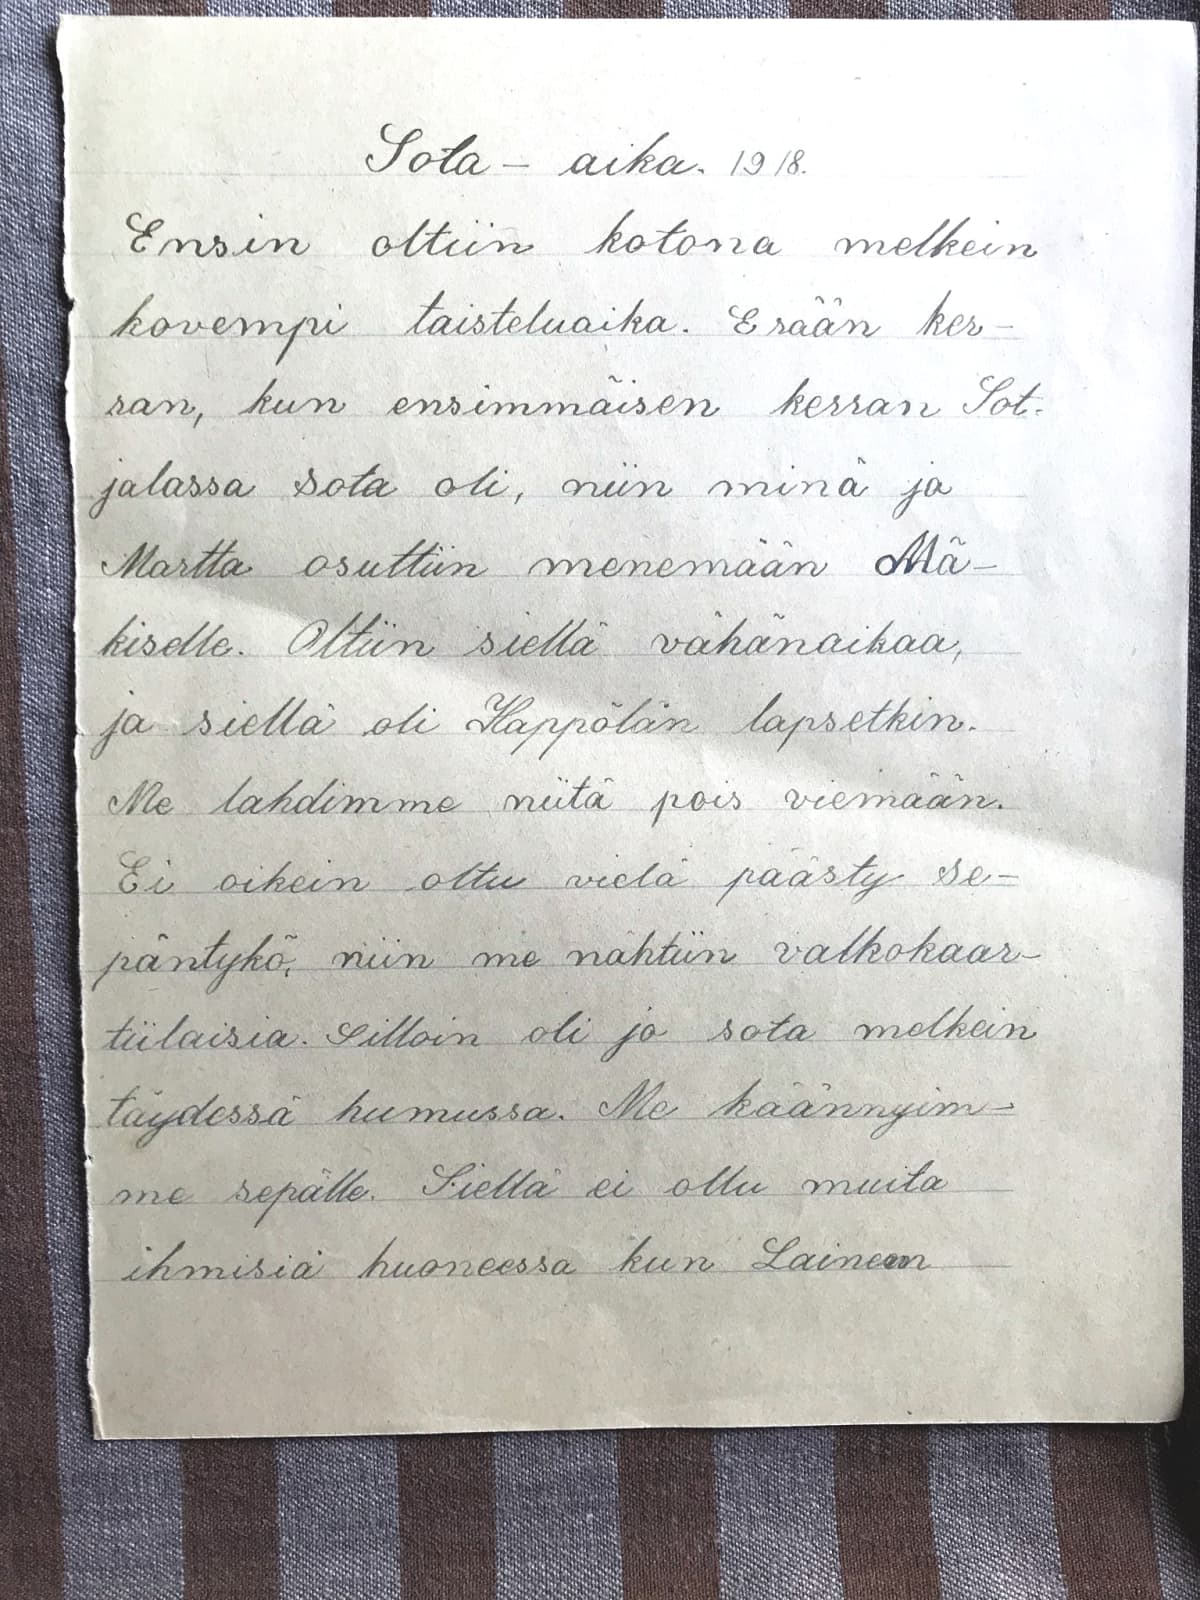 Sota - aika. 1918.
Ensin oltiin kotona melkein
kovempi taisteluaika. Erään ker-
ran, kun ensimmäisen kerran Sot-
jalassa sota oli, niin minä ja
Martta osuttiin menemään Mä-
kiselle. Oltiin siellä vähänaikaa,
ja siellä oli Kappölän lapsetkin.
Me lähdimme niitä pois viemään.
Ei oikein oltu vielä päästy se-
päntykö, niin me nähtiin valkokaar-
tiilaisia. Silloin oli jo sota melkein
täydessä humussa. Me käännyim-
me sepälle. Siellä ei ollu muita
ihmisiä huoneessa kun Laineen